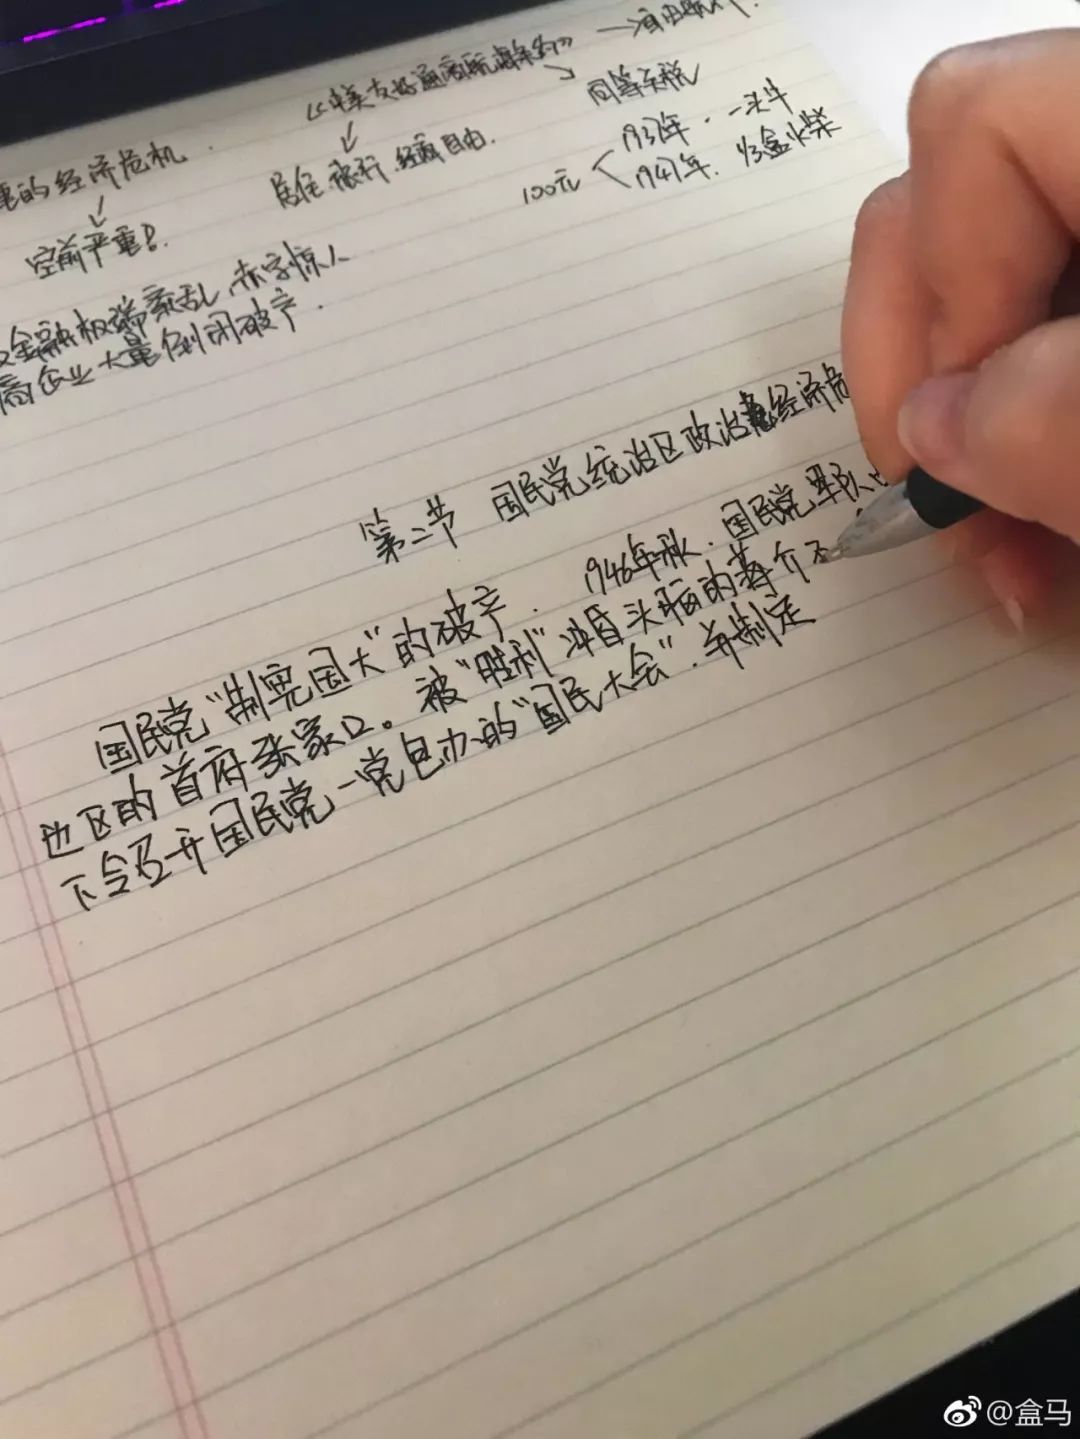 《中美友好通商航海条约》→自由航
同等关税
居住.旅行.经商自由.
100元
1937年.一头牛
1947年.1/3盒火柴
的经济危机
空前严重!
金融极端紊乱,赤字惊人
商企业大量倒闭破产.
第二节 国民党统治区政治经济危
国民党"制宪国大"的破产. 1946年秋.国民党军队
边区的首府张家口。被"胜利"冲昏头脑的蒋介
下令召开国民党一党包办的"国民大会".并制定
@盒马